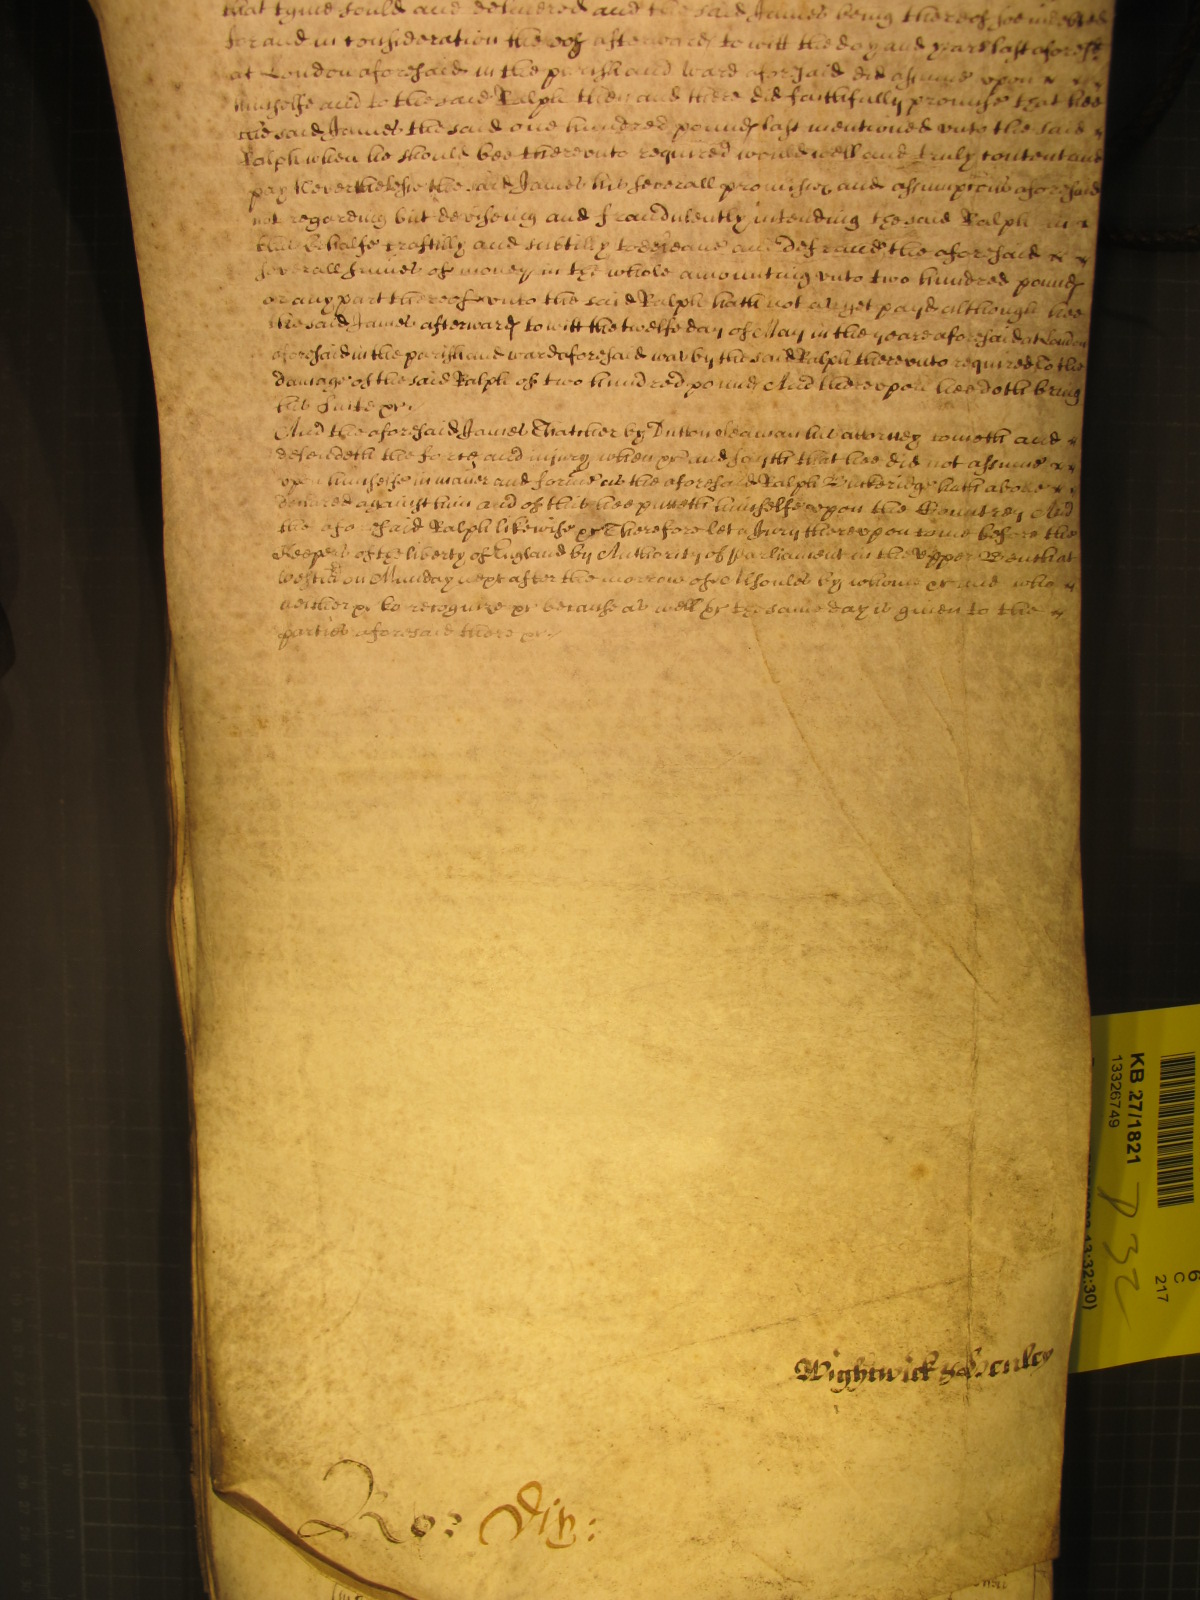 that tyme sould and delivered and the said James being thereof soe indebted
for and in consideration thereof afterwards to witt the day and yeare last aforesd
at London aforesaid in the parish and ward aforesaid did assume upon
himselfe and to the said Ralph then and there did faithfully promise that hee
the said James the said one hundred pounds last mentioned unto the said
Ralph when he should bee thereunto required would well and truly content and
pay Neverthelesse the said James his severall promises and assumptions aforesaid
not regarding but deviseing and fraudulently intending the said Ralph in
this behalfe craftilly and subtilly to deceave and defraude the aforesaid
severall summes of money in the whole amounting unto two hundred pounds
or any part thereof unto the said Ralph hath not as yet payd although hee
the said James afterwards to witt the twelfe day of May in the yeare aforesaid at London
aforesaid in the parish and ward aforesaid was by the said Ralph thereunto required To the
damage of the said Ralph of two hundred pounds And thereupon hee doth bring
his suite &c
And the aforesaid James Thatcher by Dutton Seaman his attorney cometh and
defendeth the force and injury when &c and sayth that hee did not assume
upon himselfe in maner and forme as the aforesaid Ralph hath above
declared against him and of this hee putteth himselfe upon the Countrey And
the aforesaid Ralph likewise &c Therefore let a Jury thereupon come before the
Keepers of the liberty of England by Authority of Parliament in the Upper Bench at
Westmr on Munday next after the morrow of All soules by whome &c and who
neither &c to recognize &c because as well &c the same day is given to the
parties aforesaid there &c
Wightwick & Henley
Ro:
KB 27/1821
13326749
217
6
C
13:32:30)